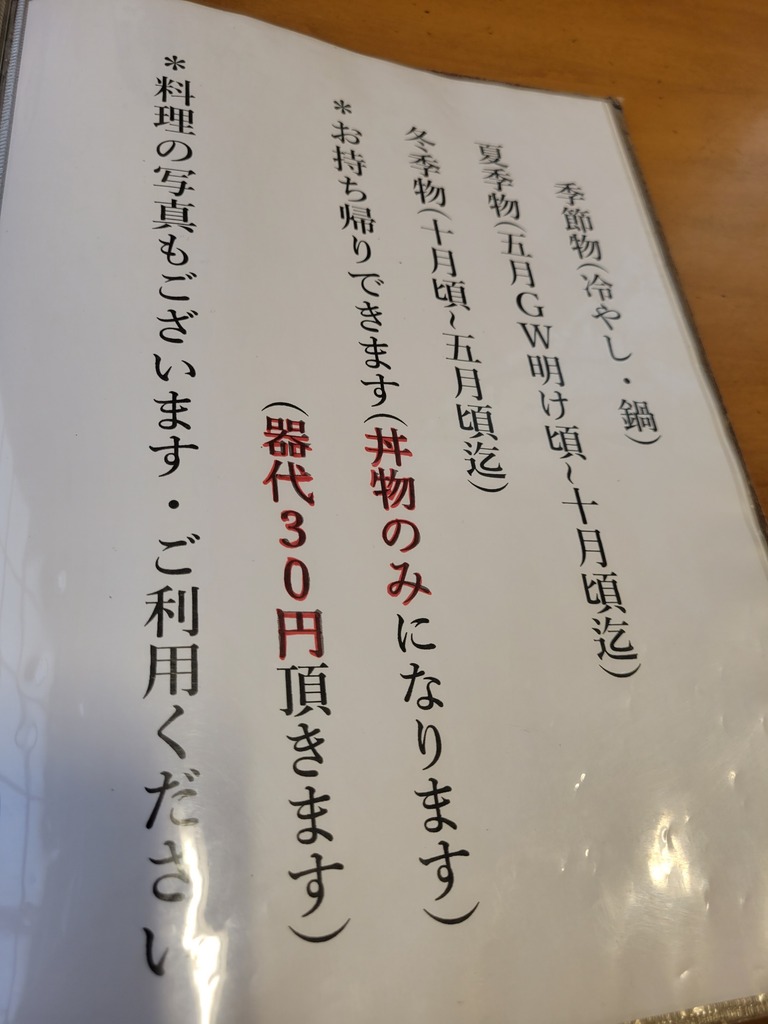 季節物(冷やし・鍋)
夏季物(五月GW明け頃~十月頃迄)
冬季物(十月頃~五月頃迄)
*お持ち帰りできます(丼物のみになります)
(器代30円頂きます)
*料理の写真もございます・ご利用ください